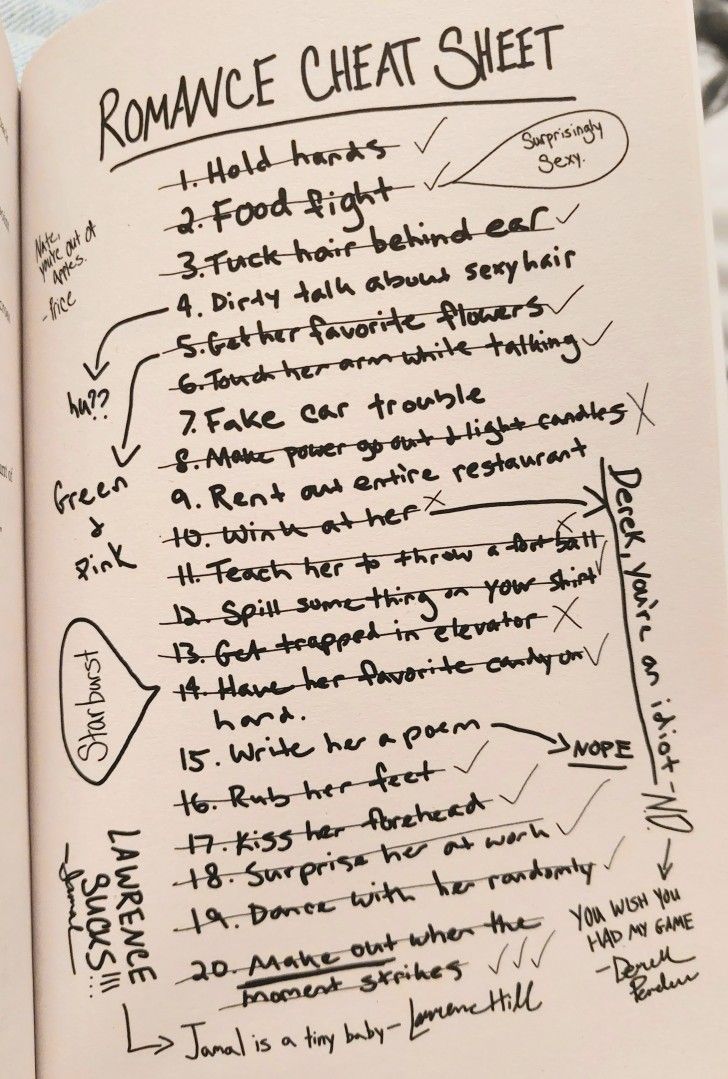 ROMANCE CHEAT SHEET
1. Hold hands ✓
2. Food fight ✓
Surprisingly
Sexy.
3. Tuck hair behind ear ✓
Nate,
you're out of
apples.
-Price
4. Dirty talk about sexy hair
hu??
5. Get her favorite flowers ✓
Green
&
pink
6. Touch her arm while talking ✓
7. Fake car trouble
8. Make power go out & light candles X
9. Rent out entire restaurant
10. Wink at her X
Derek, you're an idiot -ND.
YOU WISH YOU
HAD MY GAME
-Derek
11. Teach her to throw a foot ball X
12. Spill something on your shirt ✓
13. Get trapped in elevator X
14. Have her favorite candy on ✓
hand.
Starburst
15. Write her a poem
NOPE
16. Rub her feet ✓
17. Kiss her forehead ✓
18. Surprise her at work ✓
19. Dance with her randomly ✓
20. Make out when the
moment strikes ✓✓✓
LAWRENCE
SUCKS!!!
-Jamal
Jamal is a tiny baby - Lawrence Hill